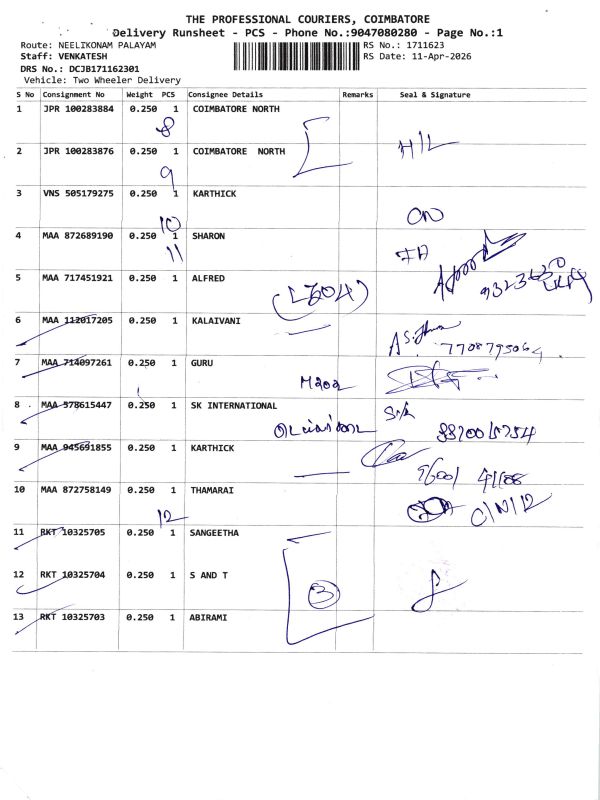 THE PROFESSIONAL COURIERS, COIMBATORE
Delivery Runsheet - PCS - Phone No.:9047080280 - Page No.:1
Route: NEELIKONAM PALAYAM RS No.: 1711623
Staff: VENKATESH RS Date: 11-Apr-2026
DRS No.: DCJB171162301
Vehicle: Two Wheeler Delivery
S No Consignment No Weight PCS Consignee Details Remarks Seal & Signature
1 JPR 100283884 0.250 1 COIMBATORE NORTH
8
H/L
2 JPR 100283876 0.250 1 COIMBATORE NORTH
9
3 VNS 505179275 0.250 1 KARTHICK
10
4 MAA 872689190 0.250 1 SHARON
11
5 MAA 717451921 0.250 1 ALFRED
6 MAA 112017205 0.250 1 KALAIVANI
7708795064
7 MAA 714097261 0.250 1 GURU
8 MAA 578615447 0.250 1 SK INTERNATIONAL
9 MAA 945691855 0.250 1 KARTHICK
10 MAA 872758149 0.250 1 THAMARAI
12
11 RKT 10325705 0.250 1 SANGEETHA
12 RKT 10325704 0.250 1 S AND T
3
13 RKT 10325703 0.250 1 ABIRAMI